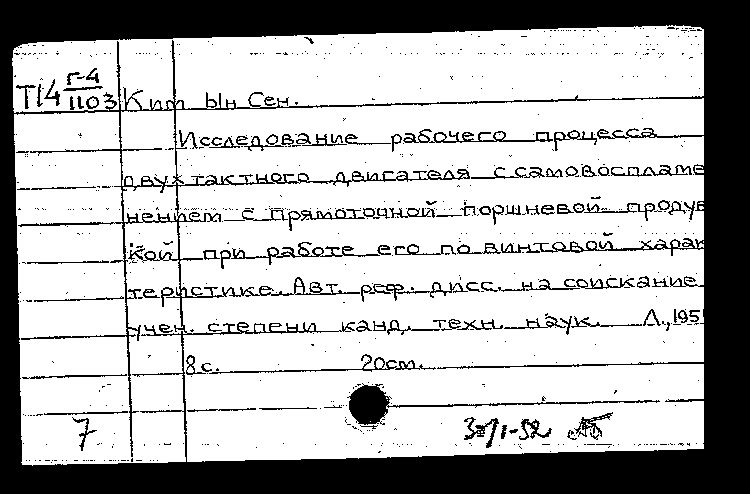 Т14 Г-4
1103 Ким Ын Сен.
Исследование рабочего процесса
двухтактного двигателя с самовоспламе
нением с прямоточной поршневой продув
кой при работе его по винтовой харак
теристике. Авт. реф. дисс. на соискание
учен. степени канд. техн. наук. Л., 195
8 с. 20см.
7